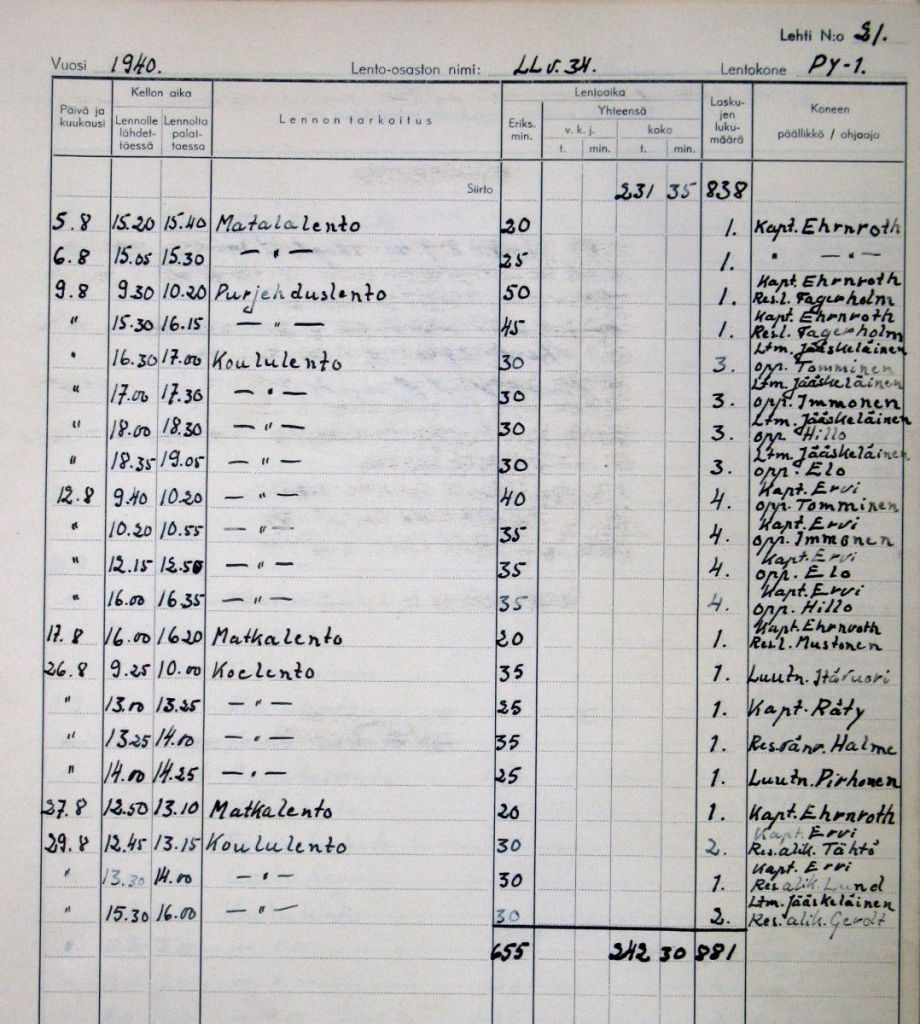 Lehti N:o 21.
Vuosi 1940. Lento-osaston nimi: LLv.34. Lentokone PY-1.
Päivä ja kuukausi Kellon aika Lennolle lähdettäessä Lennolta palattaessa Lennon tarkoitus Lentoaika Eriks. min. Yhteensä v. k. j. t. min. koko t. min. Laskujen lukumäärä Koneen päällikkö / ohjaaja
Siirto 231 35 838
5.8 15.20 15.40 Matalalento 20 1. Kapt. Ehrnroth
6.8 15.05 15.30 — " — 25 1. " — " —
9.8 9.30 10.20 Purjehduslento 50 1. Kapt. Ehrnroth Res.l. Fagerholm
" 15.30 16.15 — " — 45 1. Kapt. Ehrnroth Res.l. Fagerholm
" 16.30 17.00 Koululento 30 3. Ltm. Jääskeläinen opp. Tomminen
" 17.00 17.30 — " — 30 3. Ltm. Jääskeläinen opp. Immonen
" 18.00 18.30 — " — 30 3. Ltm. Jääskeläinen opp. Hillo
" 18.35 19.05 — " — 30 3. Ltm. Jääskeläinen opp. Elo
12.8 9.40 10.20 — " — 40 4. Kapt. Ervi opp. Tomminen
" 10.20 10.55 — " — 35 4. Kapt. Ervi opp. Immonen
" 12.15 12.50 — " — 35 4. Kapt. Ervi opp. Elo
" 16.00 16.35 — " — 35 4. Kapt. Ervi opp. Hillo
17.8 16.00 16.20 Matkalento 20 1. Kapt. Ehrnroth Res.l. Mustonen
26.8 9.25 10.00 Koelento 35 1. Luutn. Itävuori
" 13.00 13.25 — " — 25 1. Kapt. Räty
" 13.25 14.00 — " — 35 1. Res.vänr. Halme
" 14.00 14.25 — " — 25 1. Luutn. Pirhonen
27.8 12.50 13.10 Matkalento 20 1. Kapt. Ehrnroth
29.8 12.45 13.15 Koululento 30 2. Kapt. Ervi Res.alik. Tähtö
" 13.30 14.00 — " — 30 1. Kapt. Ervi Res.alik. Lund
" 15.30 16.00 — " — 30 2. Ltm. Jääskeläinen Res.alik. Gerdt
655 242 30 881